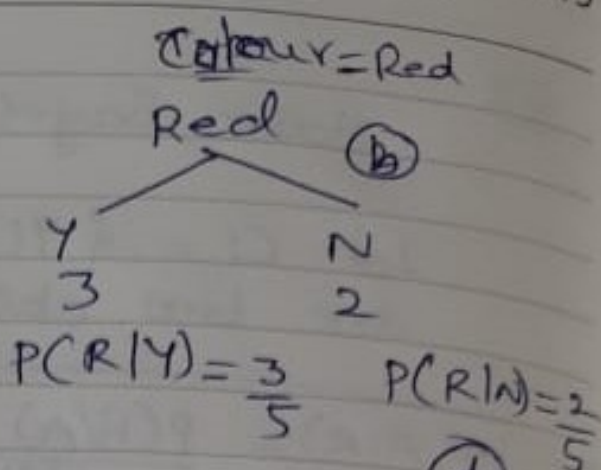 Colour = Red
Red
b
Y N
3 2
P(R|Y) = 3/5 P(R|N) = 2/5